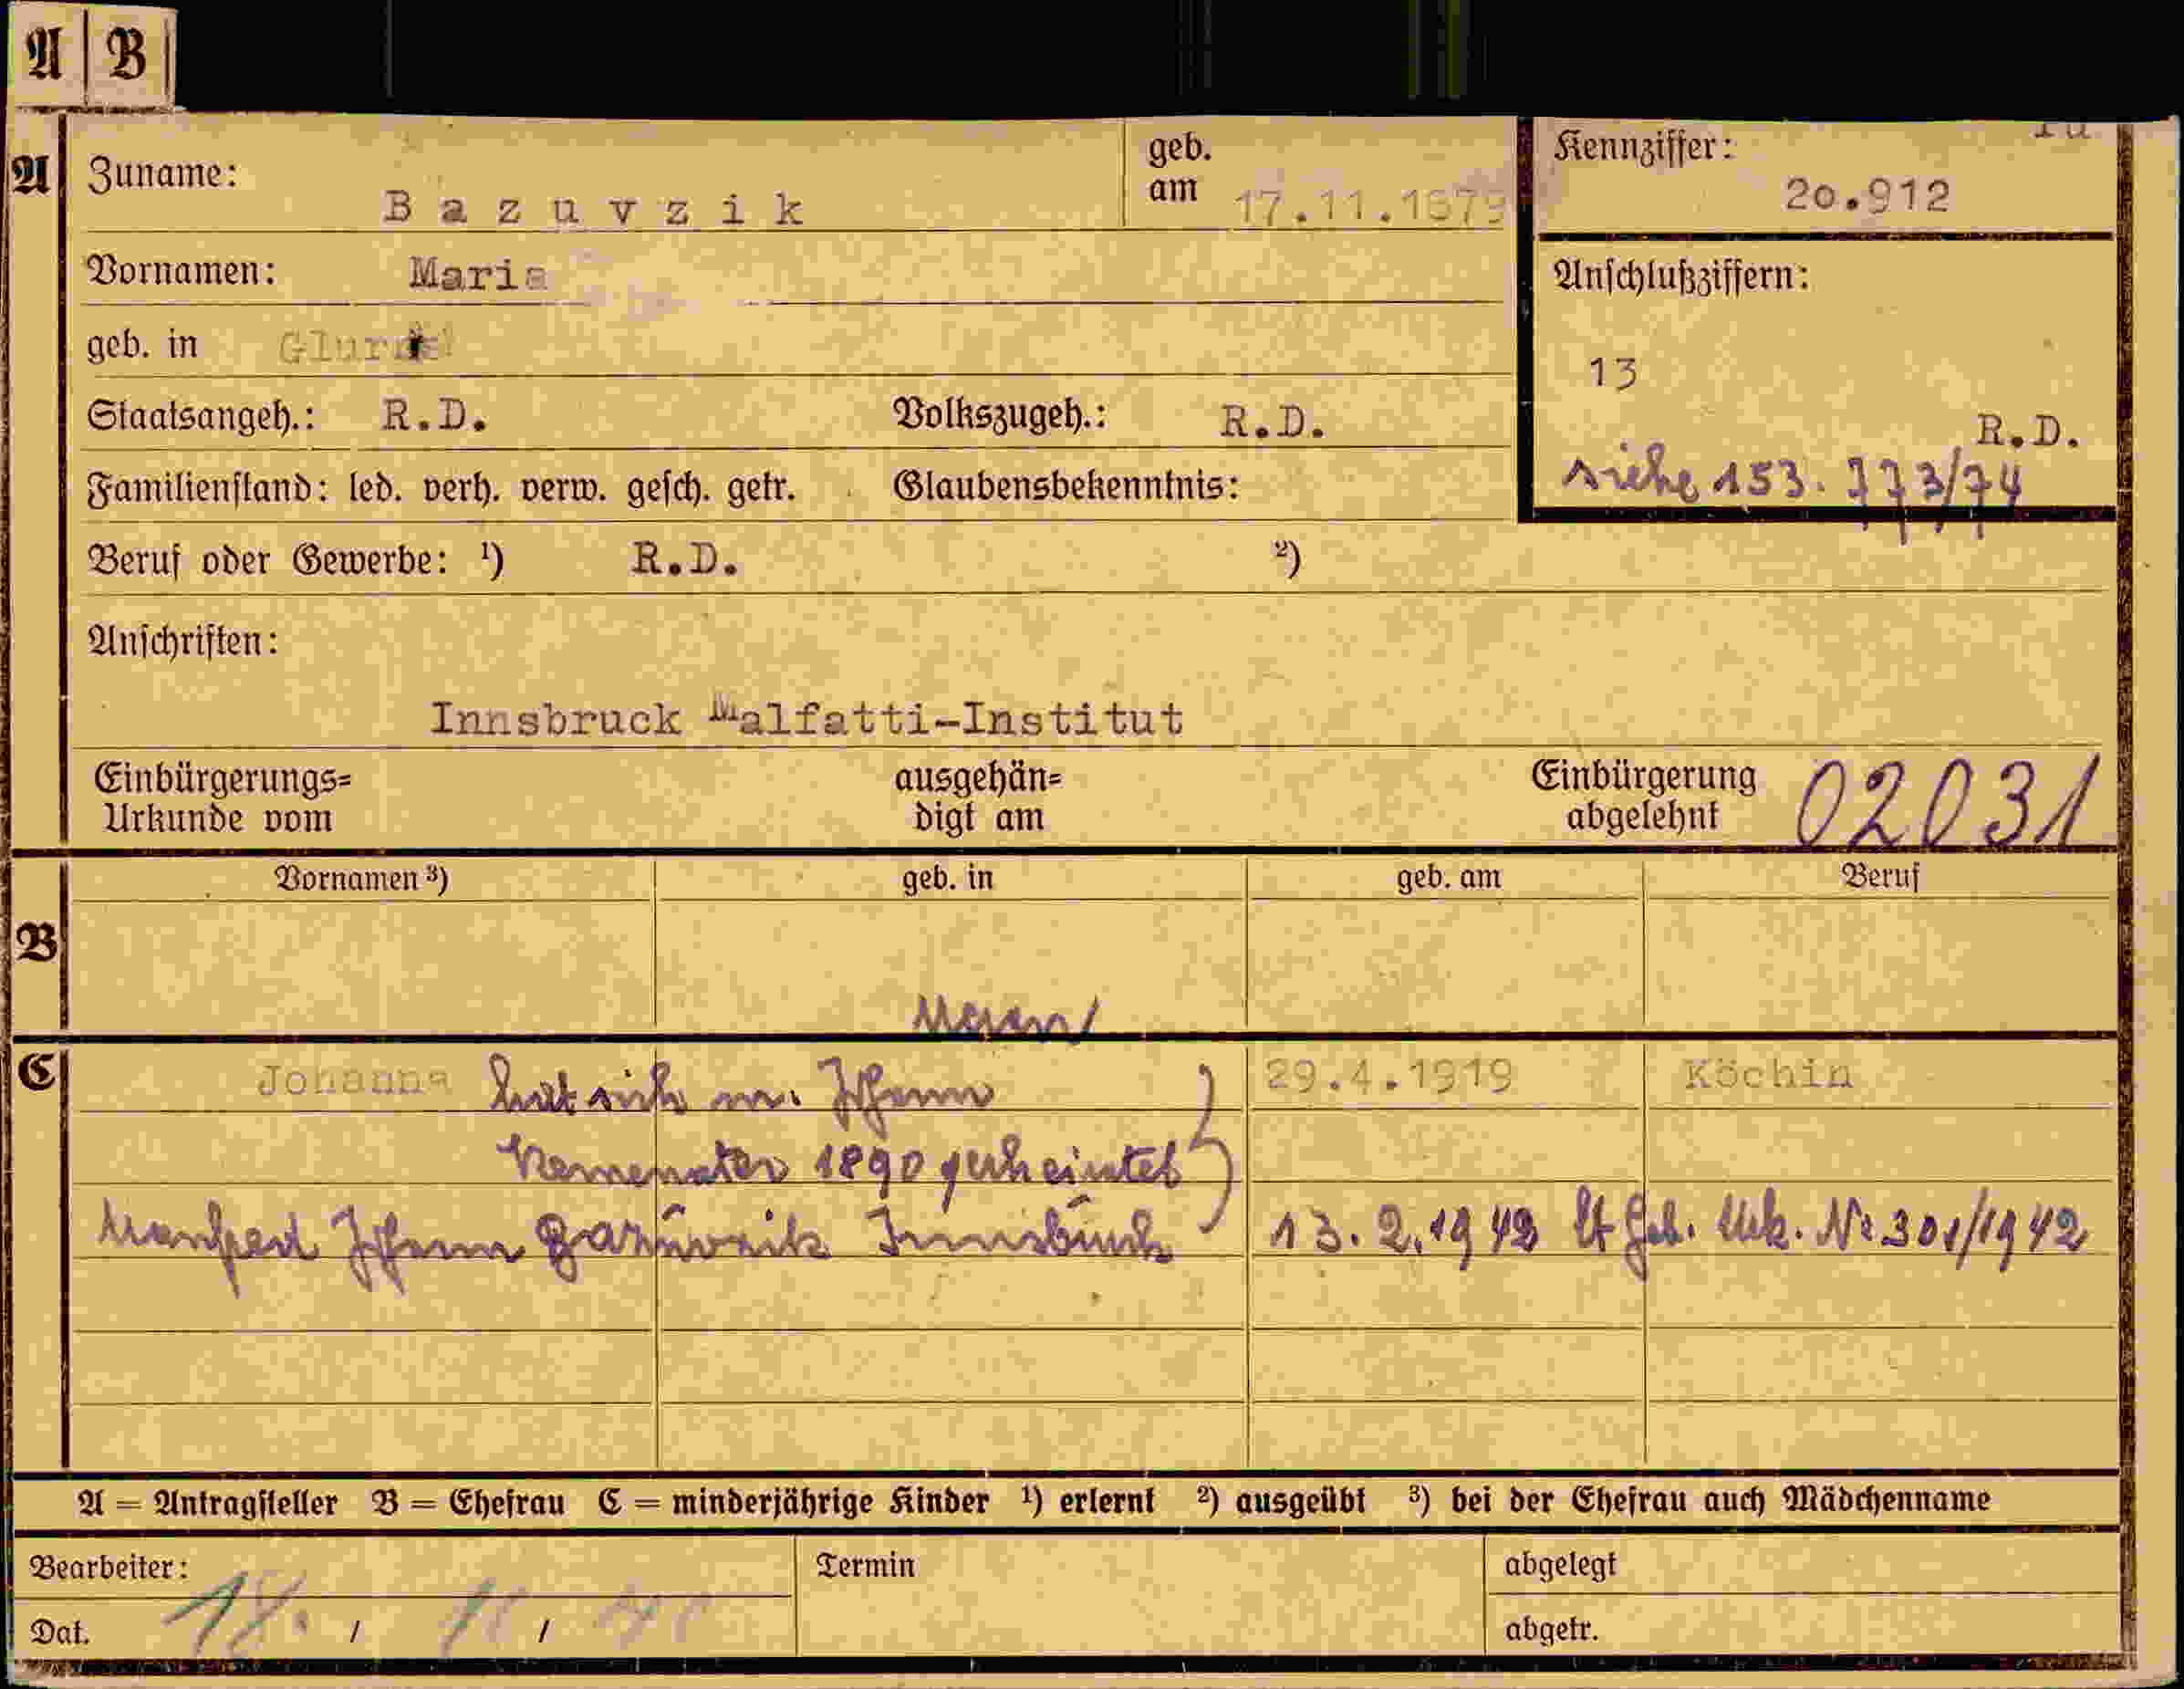 A B
A Zuname: Bazuvzik geb. am 17.11.1879 Kennziffer: 20.912
Vornamen: Maria Anschlußziffern:
geb. in Glurns
13
Staatsangeh.: R.D. Volkszugeh.: R.D. R.D.
Familienstand: led. verh. verw. gesch. getr. Glaubensbekenntnis: siehe 153.773/74
Beruf oder Gewerbe: ¹) R.D. ²)
Anschriften:
Innsbruck Malfatti-Institut
Einbürgerungs= ausgehän= Einbürgerung 02031
Urkunde vom digt am abgelehnt
Vornamen ³) geb. in geb. am Beruf
B
Meran
C Johanna hat sich m. Johann 29.4.1919 Köchin
Kemenater 1890 verheiratet
Manfred Johann Bazuvzik Innsbruck 13.2.1942 lt Geb. Urk. Nr. 301/1942
A = Antragsteller B = Ehefrau C = minderjährige Kinder ¹) erlernt ²) ausgeübt ³) bei der Ehefrau auch Mädchenname
Bearbeiter: Termin abgelegt
Dat. 18. / / abgetr.